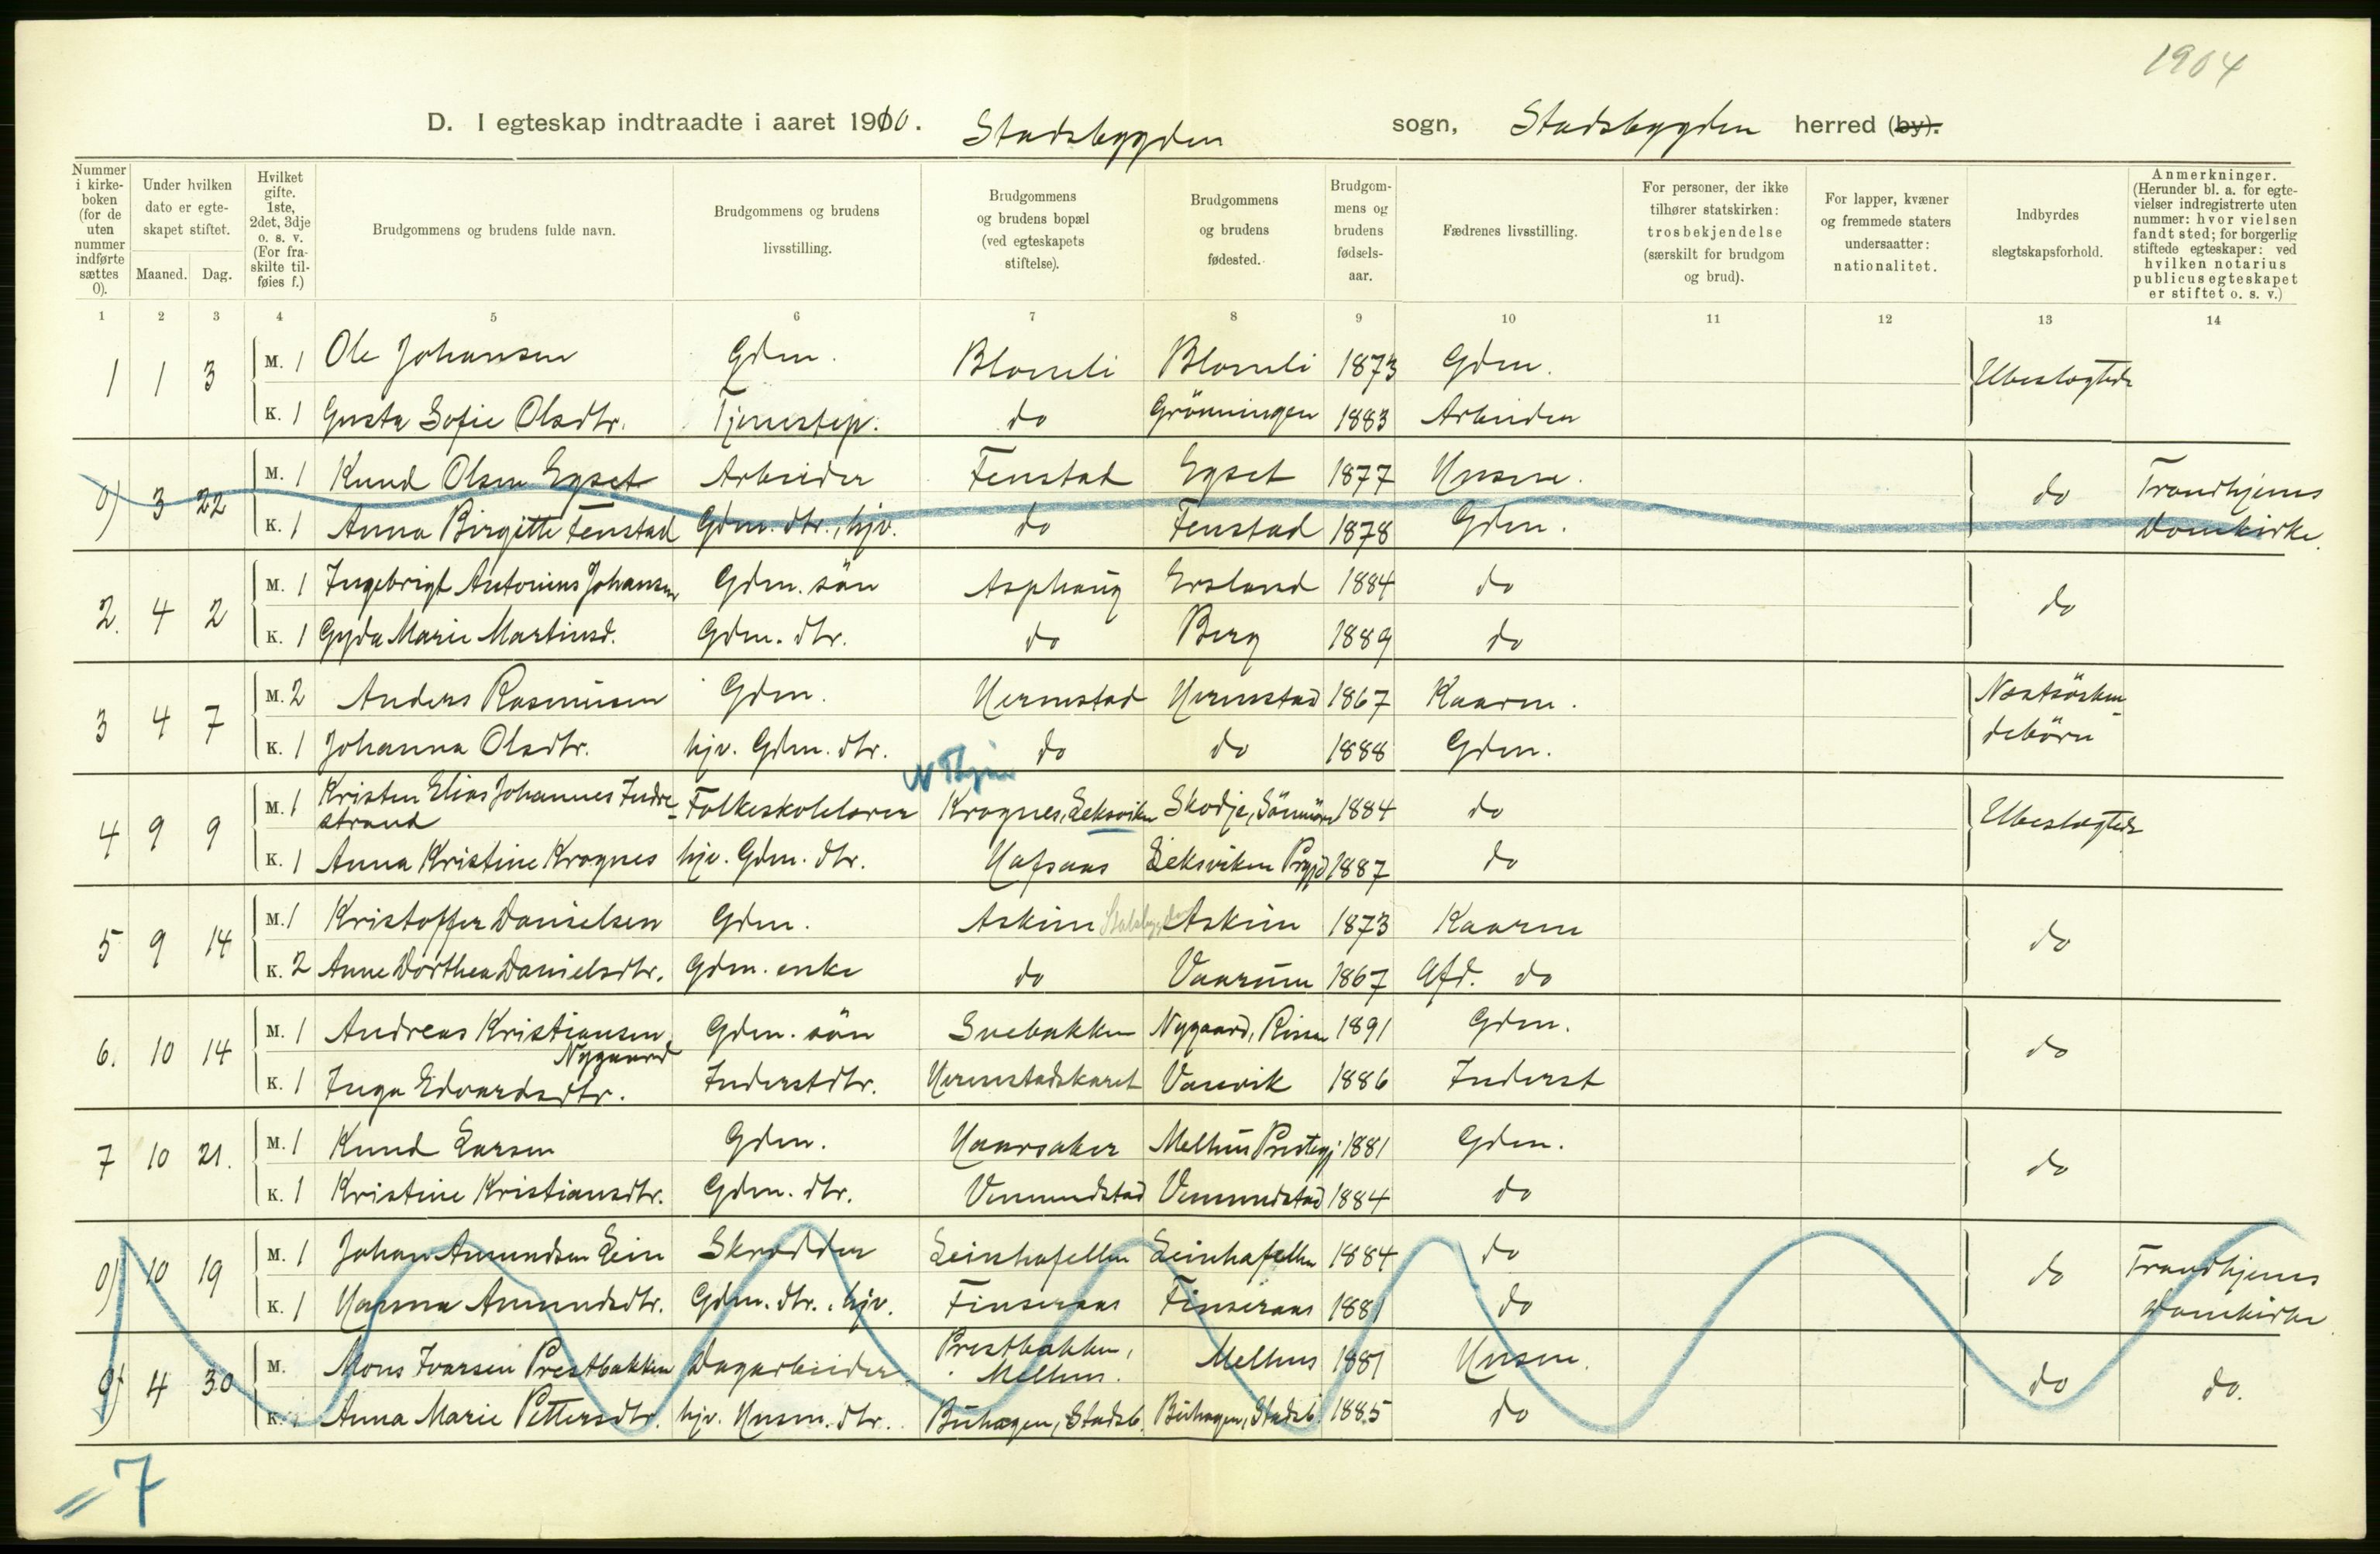 1904
D. I egteskap indtraadte i aaret 1910. Stadsbygden sogn, Stadsbygden herred (by).
Nummer i kirke- boken (for de uten nummer indførte sættes 0).
Under hvilken dato er egte- skapet stiftet.
Maaned. Dag.
Hvilket gifte. 1ste, 2det, 3dje o. s. v. (For fra- skilte til- føies f.)
Brudgommens og brudens fulde navn.
Brudgommens og brudens livsstilling.
Brudgommens og brudens bopæl (ved egteskapets stiftelse).
Brudgommens og brudens fødested.
Brudgom- mens og brudens fødsels- aar.
Fædrenes livsstilling.
For personer, der ikke tilhører statskirken: trosbekjendelse (særskilt for brudgom og brud).
For lapper, kvæner og fremmede staters undersaatter: nationalitet.
Indbyrdes slegtskapsforhold.
Anmerkninger. (Herunder bl. a. for egte- vielser indregistrerte uten nummer: hvor vielsen fandt sted; for borgerlig stiftede egteskaper: ved hvilken notarius publicus egteskapet er stiftet o. s. v.)
1 2 3 4 5 6 7 8 9 10 11 12 13 14
1 1 3 M. 1 Ole Johansen Gdm. Blomli Blomli 1873 Gdm. Ubeslægtede
K. 1 Gusta Sofie Olsdtr. Tjenestep. do Grönningen 1883 Arbeider
0) 3 22 M. 1 Knud Olsen Egset Arbeider Fenstad Egset 1877 Husm. do Trondhjems
K. 1 Anna Birgitte Fenstad Gdm. dtr., hjv. do Fenstad 1878 Gdm. Domkirke.
2. 4 2 M. 1 Ingebrigt Antonius Johansen Gdm. sön Asphaug Ersland 1884 do do
K. 1 Gyda Marie Martinsd. Gdm. dtr. do Berg 1889 do
3 4 7 M. 2 Anders Rasmusen Gdm. Hermstad Hermstad 1867 Kaarm. Næstsösken-
K. 1 Johanna Olsdtr. hjv. Gdm. dtr. do do 1888 Gdm. debörn
4 9 9 M. 1 Kristen Elias Johannes Indre- strand Folkeskolelærer Krognes, Leksviken Skodje, Sönmöre 1884 do Ubeslægtede
K. 1 Anna Kristine Krognes hjv. Gdm. dtr. Hafsaas Leksviken Prgjd 1887 do
5 9 14 M. 1 Kristoffer Danielsen Gdm. Askim Stadsbygden Askim 1873 Kaarm do
K. 2 Anne Dorthea Danielsdtr. Gdm. enke do Vaarum 1867 Afd. do
6. 10 14 M. 1 Andreas Kristiansen Nygaard Gdm. sön Svebakken Nygaard, Rissa 1891 Gdm. do
K. 1 Inga Edvardsdtr. Inderstdtr. Hermstadskaret Vanvik 1886 Inderst
7 10 21. M. 1 Knud Larsen Gdm. Haarsaker Melhus Prestegj. 1881 Gdm. do
K. 1 Kristine Kristiansdtr. Gdm. dtr. Vemundstad Vemundstad 1884 do
0) 10 19 M. 1 Johan Amundsen Lein Skrædder Leinshafellen Leinhafellen 1884 do do Trondhjems
K. 1 Hanna Amundsdtr. Gdm. dtr., hjv. Finseraas Finseraas 1881 do Domkirke.
0) 4 30 M. Mons Ivarsen Prestbakken Dagarbeider Prestbakken, Melhus. Melhus 1881 Husm. do do.
K. 1 Anna Marie Pettersdtr. hjv. Husm. dtr. Buhagen, Stadsb. Buhagen, Stadsb. 1885 do
= 7